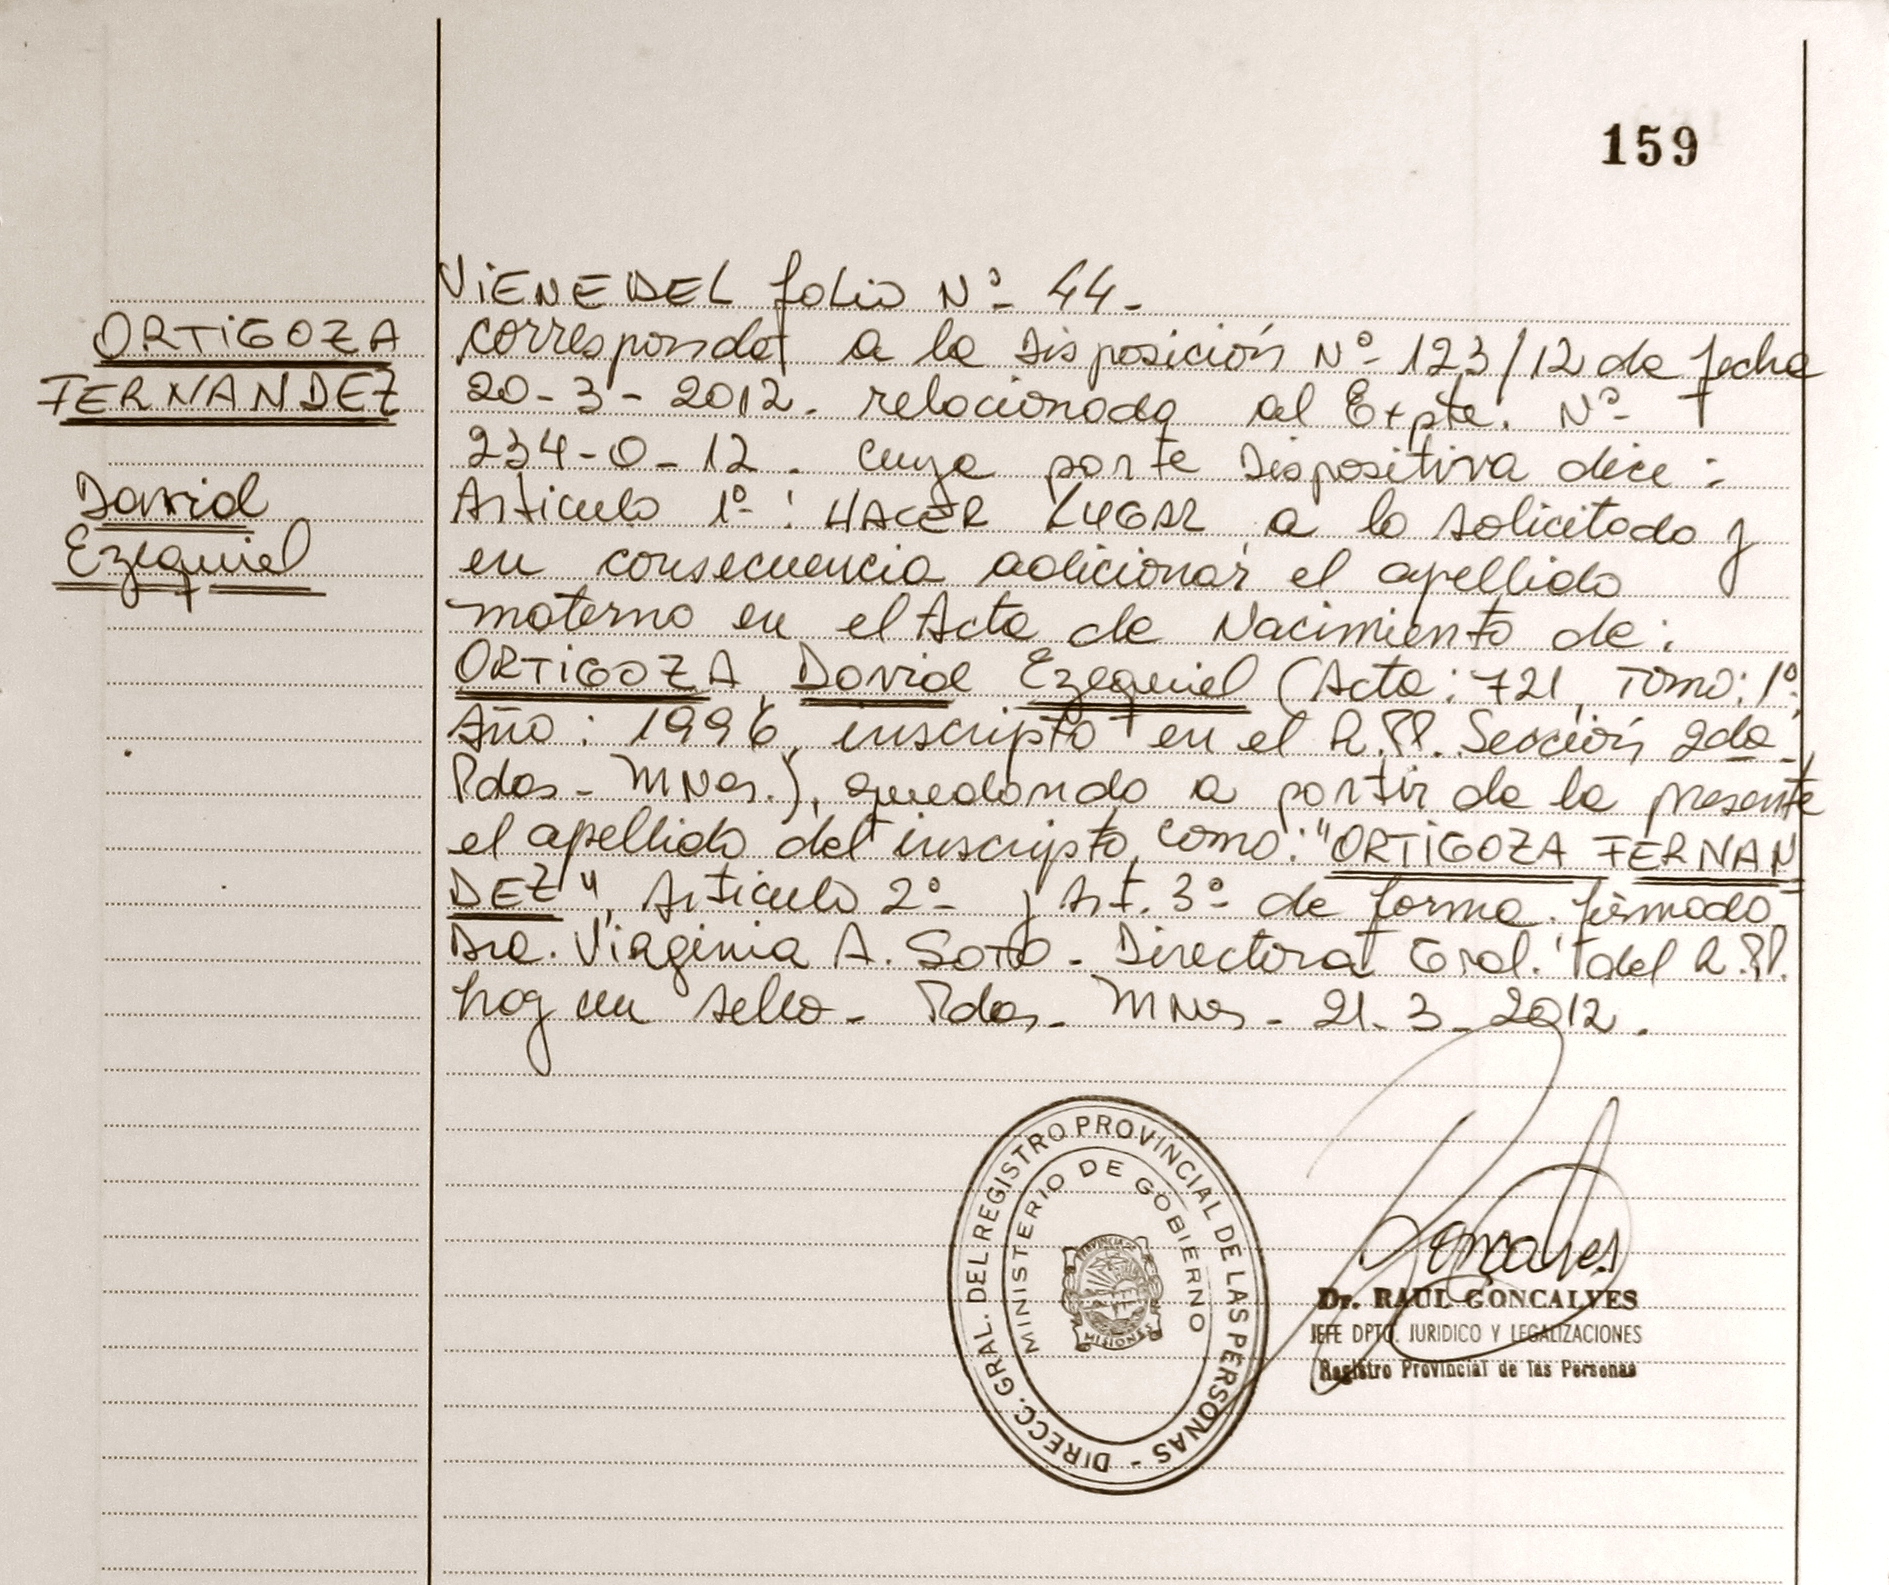 159
VIENE DEL folio Nº 44-
ORTIGOZA
FERNANDEZ
David
Ezequiel
corresponde a la Disposición Nº 123/12 de fecha
20-3-2012. relacionada al Expte. Nº
234-O-12. cuya parte Dispositiva dice:
Articulo 1º: HACER LUGAR a lo solicitado y
en consecuencia adicionar el apellido
materno en el Acta de Nacimiento de:
ORTIGOZA, David Ezequiel (Acta: 721, Tomo: 1º,
Año: 1996, inscripto en el R.PP. Sección 2da-,
Pdas- MNes.), quedando a partir de la presente
el apellido del inscripto, como: "ORTIGOZA FERNAN
DEZ", Articulo 2º y Art. 3º de forma. firmado,
Dra. Virginia A. Soto- Directora Gral. del R.PP.
hay un sello- Pdas- MNes- 21-3-2012.
DIRECC. GRAL. DEL REGISTRO PROVINCIAL DE LAS PERSONAS -
MINISTERIO DE GOBIERNO
PROVINCIA DE
MISIONES
Dr. RAUL GONCALVES
JEFE DPTO. JURIDICO Y LEGALIZACIONES
Registro Provincial de las Personas